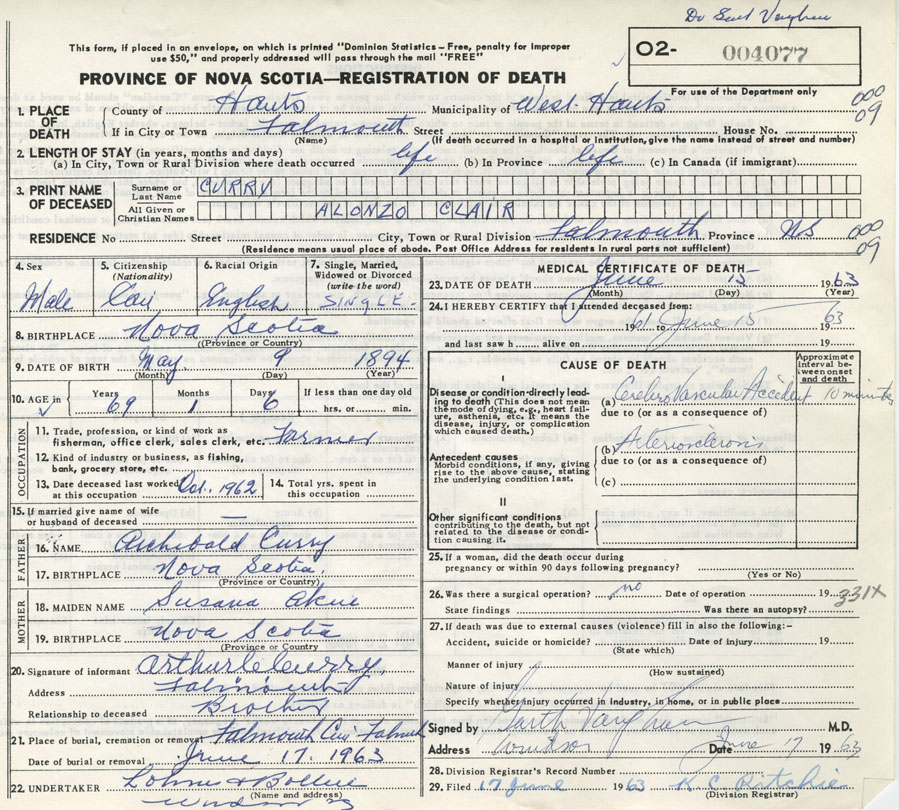 This form, if placed in an envelope, on which is printed "Dominion Statistics – Free, penalty for improper
use $50," and properly addressed will pass through the mail "FREE"
O2- 004077
For use of the Department only
PROVINCE OF NOVA SCOTIA—REGISTRATION OF DEATH
000
09
1. PLACE OF DEATH County of Hants Municipality of West Hants
If in City or Town Falmouth Street House No.
(Name) (If death occurred in a hospital or institution, give the name instead of street and number)
2. LENGTH OF STAY (in years, months and days)
(a) In City, Town or Rural Division where death occurred life (b) In Province life (c) In Canada (if immigrant)
3. PRINT NAME OF DECEASED
Surname or Last Name CURRY
All Given or Christian Names ALONZO CLAIR
RESIDENCE No Street City, Town or Rural Division Falmouth Province NS
(Residence means usual place of abode. Post Office Address for residents in rural parts not sufficient)
000
09
4. Sex Male
5. Citizenship (Nationality) Can
6. Racial Origin English
7. Single, Married, Widowed or Divorced (write the word) SINGLE.
8. BIRTHPLACE Nova Scotia
(Province or Country)
9. DATE OF BIRTH May 9 1894
(Month) (Day) (Year)
10. AGE in Years 69 Months 1 Days 6 If less than one day old
hrs. or min.
OCCUPATION
11. Trade, profession, or kind of work as
fisherman, office clerk, sales clerk, etc. Farmer
12. Kind of industry or business, as fishing,
bank, grocery store, etc.
13. Date deceased last worked at this occupation Oct. 1962 14. Total yrs. spent in this occupation
15. If married give name of wife
or husband of deceased —
FATHER
16. NAME Archibald Curry
17. BIRTHPLACE Nova Scotia.
(Province or Country)
MOTHER
18. MAIDEN NAME Susana
19. BIRTHPLACE Nova Scotia
(Province or Country
20. Signature of informant Arthur C Curry
Address Falmouth
Relationship to deceased Brother
21. Place of burial, cremation or removal Falmouth Falmouth
Date of burial or removal June 17, 1963
22. UNDERTAKER
(Name and address)
Windsor
MEDICAL CERTIFICATE OF DEATH
23. DATE OF DEATH June 15 1963
(Month) (Day) (Year)
24. I HEREBY CERTIFY that I attended deceased from:
1961 to June 15 1963
and last saw h alive on 19
CAUSE OF DEATH
Approximate interval between onset and death
I
Disease or condition directly leading to death (This does not mean the mode of dying, e.g., heart failure, asthenia, etc. It means the disease, injury, or complication which caused death.)
(a) Cerebro Vascular Accident 10 minutes
due to (or as a consequence of)
Antecedent causes
Morbid conditions, if any, giving rise to the above cause, stating the underlying condition last.
(b) Arteriosclerosis
due to (or as a consequence of)
(c)
II
Other significant conditions
contributing to the death, but not related to the disease or condition causing it.
25. If a woman, did the death occur during
pregnancy or within 90 days following pregnancy?
(Yes or No)
26. Was there a surgical operation? no Date of operation 19
331X
State findings Was there an autopsy?
27. If death was due to external causes (violence) fill in also the following:–
Accident, suicide or homicide? Date of injury 19
(State which)
Manner of injury
(How sustained)
Nature of injury
Specify whether injury occurred in industry, in home, or in public place
Signed by Garth Vaughan M.D.
Address Windsor Date June 17 1963
28. Division Registrar's Record Number
29. Filed 17 June 1963 K C Ritchie
(Division Registrar)